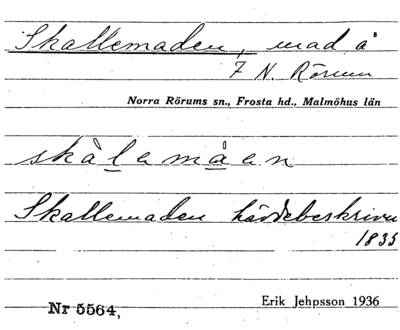 Skallemaden, mad å
7 N. Rörum
Norra Rörums sn., Frosta hd., Malmöhus län
skàlemåen
Skallemaden hävdebeskrivn
1835
Nr 5564,
Erik Jehpsson 1936